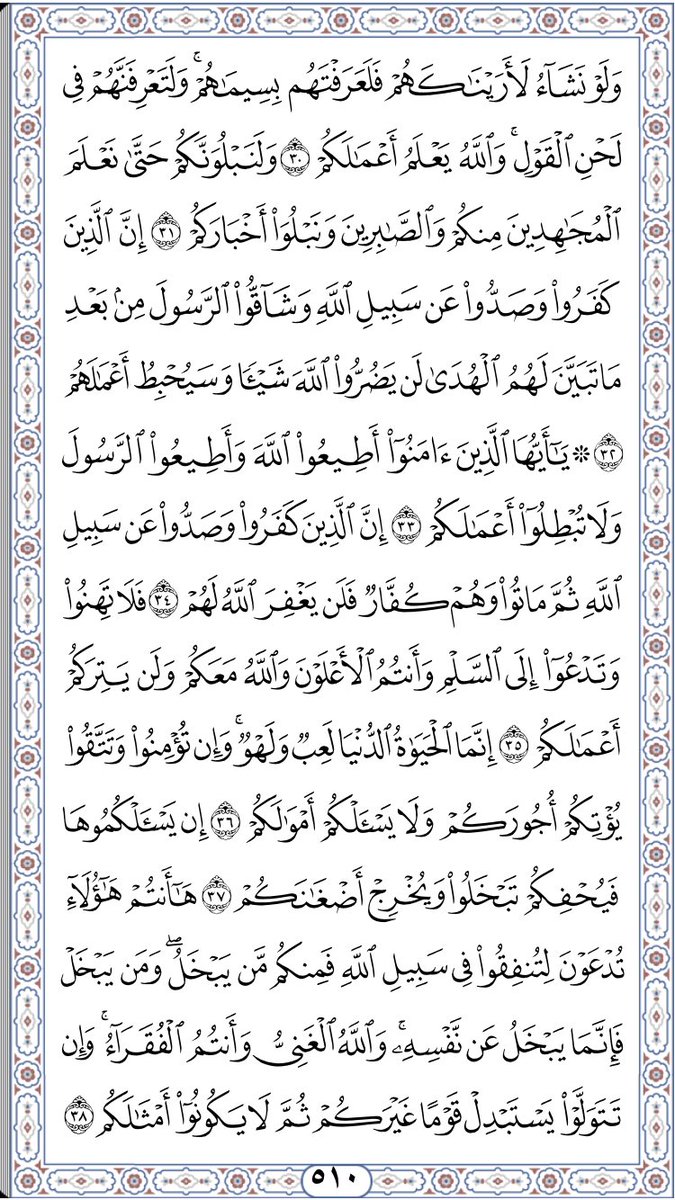 وَلَوْ نَشَآءُ لَأَرَيْنَـٰكَهُمْ فَلَعَرَفْتَهُم بِسِيمَـٰهُمْ ۚ وَلَتَعْرِفَنَّهُمْ فِى
لَحْنِ ٱلْقَوْلِ ۚ وَٱللَّهُ يَعْلَمُ أَعْمَـٰلَكُمْ ٣٠ وَلَنَبْلُوَنَّكُمْ حَتَّىٰ نَعْلَمَ
ٱلْمُجَـٰهِدِينَ مِنكُمْ وَٱلصَّـٰبِرِينَ وَنَبْلُوَا۟ أَخْبَارَكُمْ ٣١ إِنَّ ٱلَّذِينَ
كَفَرُوا۟ وَصَدُّوا۟ عَن سَبِيلِ ٱللَّهِ وَشَآقُّوا۟ ٱلرَّسُولَ مِنۢ بَعْدِ
مَا تَبَيَّنَ لَهُمُ ٱلْهُدَىٰ لَن يَضُرُّوا۟ ٱللَّهَ شَيْـًٔا وَسَيُحْبِطُ أَعْمَـٰلَهُمْ
٣٢ ۞ يَـٰٓأَيُّهَا ٱلَّذِينَ ءَامَنُوٓا۟ أَطِيعُوا۟ ٱللَّهَ وَأَطِيعُوا۟ ٱلرَّسُولَ
وَلَا تُبْطِلُوٓا۟ أَعْمَـٰلَكُمْ ٣٣ إِنَّ ٱلَّذِينَ كَفَرُوا۟ وَصَدُّوا۟ عَن سَبِيلِ
ٱللَّهِ ثُمَّ مَاتُوا۟ وَهُمْ كُفَّارٌ فَلَن يَغْفِرَ ٱللَّهُ لَهُمْ ٣٤ فَلَا تَهِنُوا۟
وَتَدْعُوٓا۟ إِلَى ٱلسَّلْمِ وَأَنتُمُ ٱلْأَعْلَوْنَ وَٱللَّهُ مَعَكُمْ وَلَن يَتِرَكُمْ
أَعْمَـٰلَكُمْ ٣٥ إِنَّمَا ٱلْحَيَوٰةُ ٱلدُّنْيَا لَعِبٌ وَلَهْوٌ ۚ وَإِن تُؤْمِنُوا۟ وَتَتَّقُوا۟
يُؤْتِكُمْ أُجُورَكُمْ وَلَا يَسْـَٔلْكُمْ أَمْوَٰلَكُمْ ٣٦ إِن يَسْـَٔلْكُمُوهَا
فَيُحْفِكُمْ تَبْخَلُوا۟ وَيُخْرِجْ أَضْغَـٰنَكُمْ ٣٧ هَـٰٓأَنتُمْ هَـٰٓؤُلَآءِ
تُدْعَوْنَ لِتُنفِقُوا۟ فِى سَبِيلِ ٱللَّهِ فَمِنكُم مَّن يَبْخَلُ ۖ وَمَن يَبْخَلْ
فَإِنَّمَا يَبْخَلُ عَن نَّفْسِهِۦ ۚ وَٱللَّهُ ٱلْغَنِىُّ وَأَنتُمُ ٱلْفُقَرَآءُ ۚ وَإِن
تَتَوَلَّوْا۟ يَسْتَبْدِلْ قَوْمًا غَيْرَكُمْ ثُمَّ لَا يَكُونُوٓا۟ أَمْثَـٰلَكُم ٣٨
٥١٠